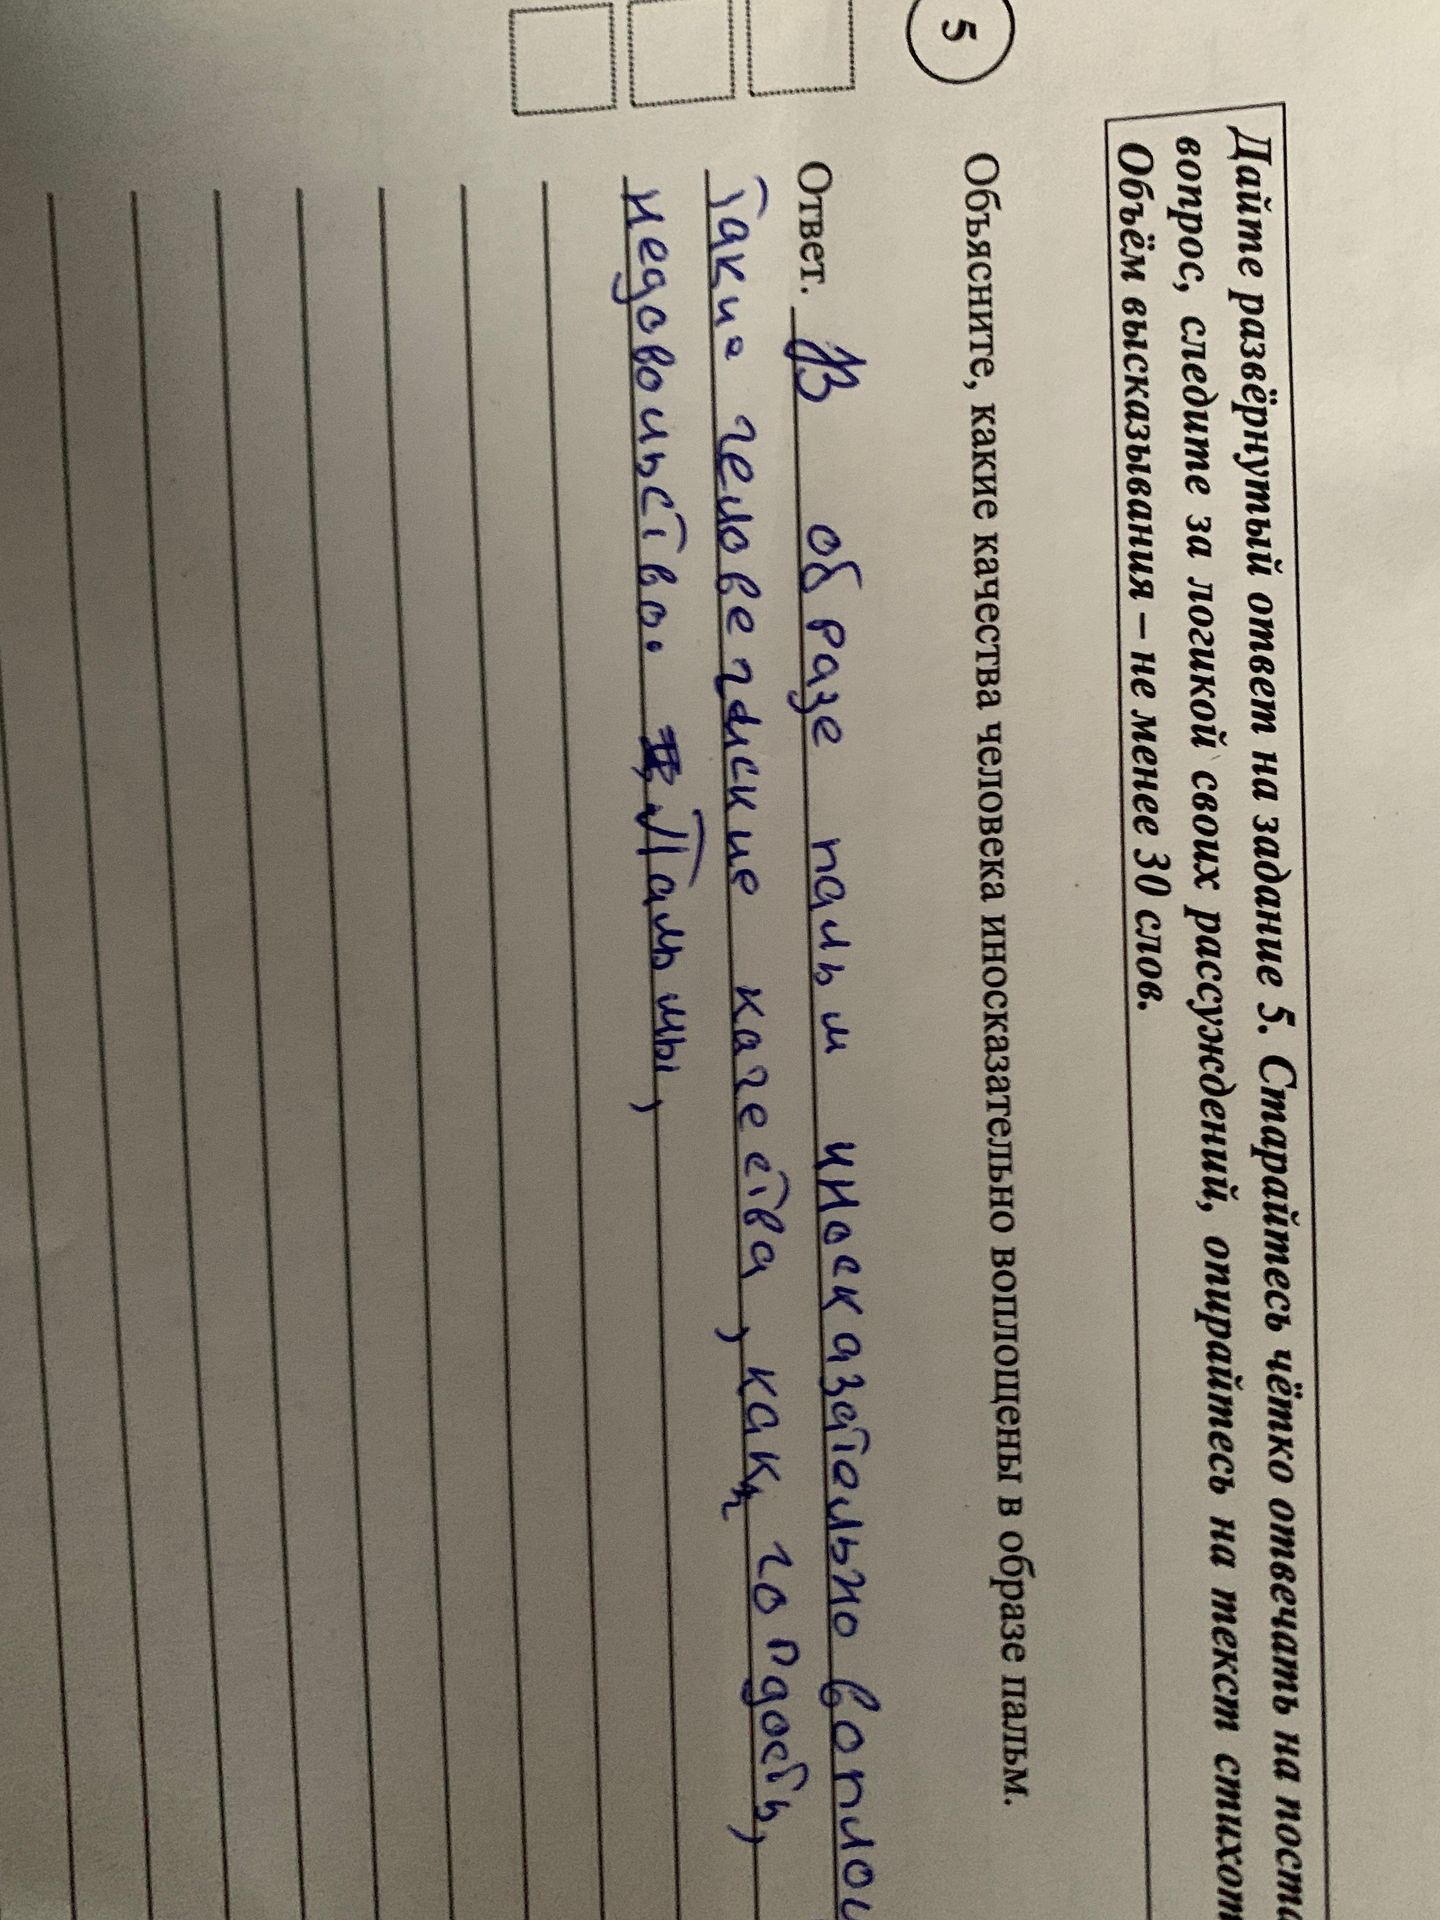 Дайте развёрнутый ответ на задание 5. Старайтесь чётко отвечать на
вопрос, следите за логикой своих рассуждений, опирайтесь на текст
Объём высказывания – не менее 30 слов.
5
Объясните, какие качества человека иносказательно воплощены в образе пальм.
Ответ. В образе пальм иносказательно
такие человеческие качества, как гордость,
недовольство. Пальмы,